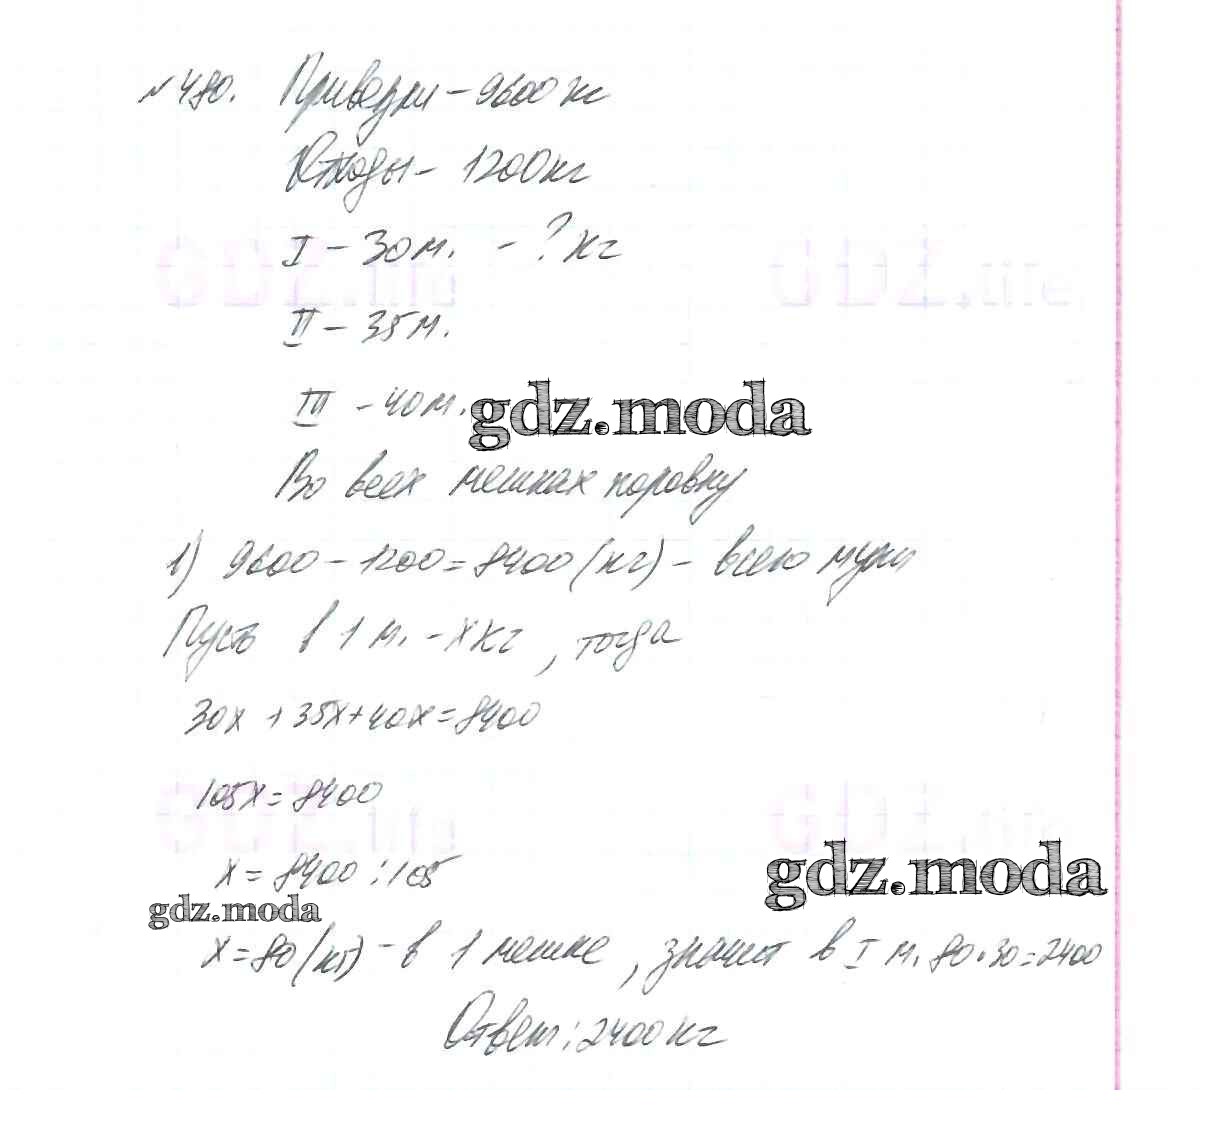 №480. Привезли - 9600 кг
Отходы - 1200кг
I - 30м. - ? кг
GDZ.life GDZ.life
II - 35м.
III - 40м.
gdz.moda
Во всех мешках поровну
1) 9600 - 1200 = 8400 (кг) - всего муки
Пусть в 1 м. - х кг, тогда
30х + 35х + 40х = 8400
105х = 8400
GDZ.life GDZ.life
х = 8400 : 105
gdz.moda
gdz.moda
х = 80 (кг) - в 1 мешке, значит в I м. 80 · 30 = 2400
Ответ: 2400 кг